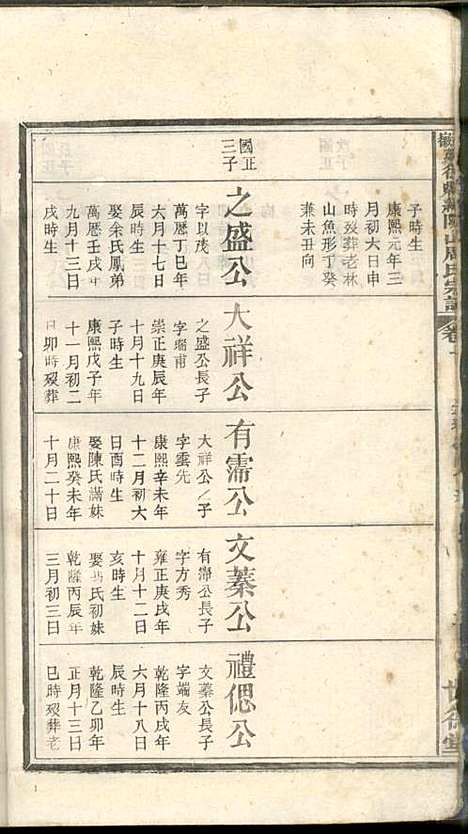 子時生
康熙元年三
月初六日申
時歿葬老林
山魚形丁癸
兼未丑向
國正
三子
之盛公
字以茂
萬曆丁巳年
六月十七日
辰時生
娶余氏鳳弟
萬曆壬戌年
九月十三日
戌時生
大祥公
之盛公長子
字瑞甫
崇正庚辰年
十月十九日
子時生
康熙戊子年
十一月初二
日卯時歿葬
有霈公
大祥公之子
字雲先
康熙辛未年
十二月初六
日酉時生
娶陳氏滿妹
康熙癸未年
十月二十日
文蓁公
有霈公長子
字方秀
雍正庚戌年
十月十二日
亥時生
娶 氏初妹
乾隆丙辰年
三月初三日
禮偲公
文蓁公長子
字端友
乾隆丙戌年
六月十八日
辰時生
乾隆乙卯年
正月十三日
巳時歿葬老
山周氏宗譜
世德堂